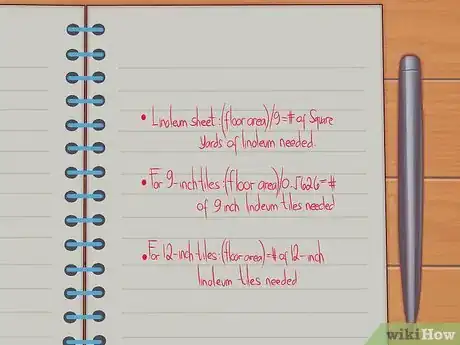 • Linoleum sheet: (floor area)/9=# of Square
yards of linoleum needed.
• For 9-inch tiles: (floor area)/0.5626=#
of 9 inch linoleum tiles needed
• For 12-inch tiles: (floor area)=# of 12-inch
linoleum tiles needed
wikiHow